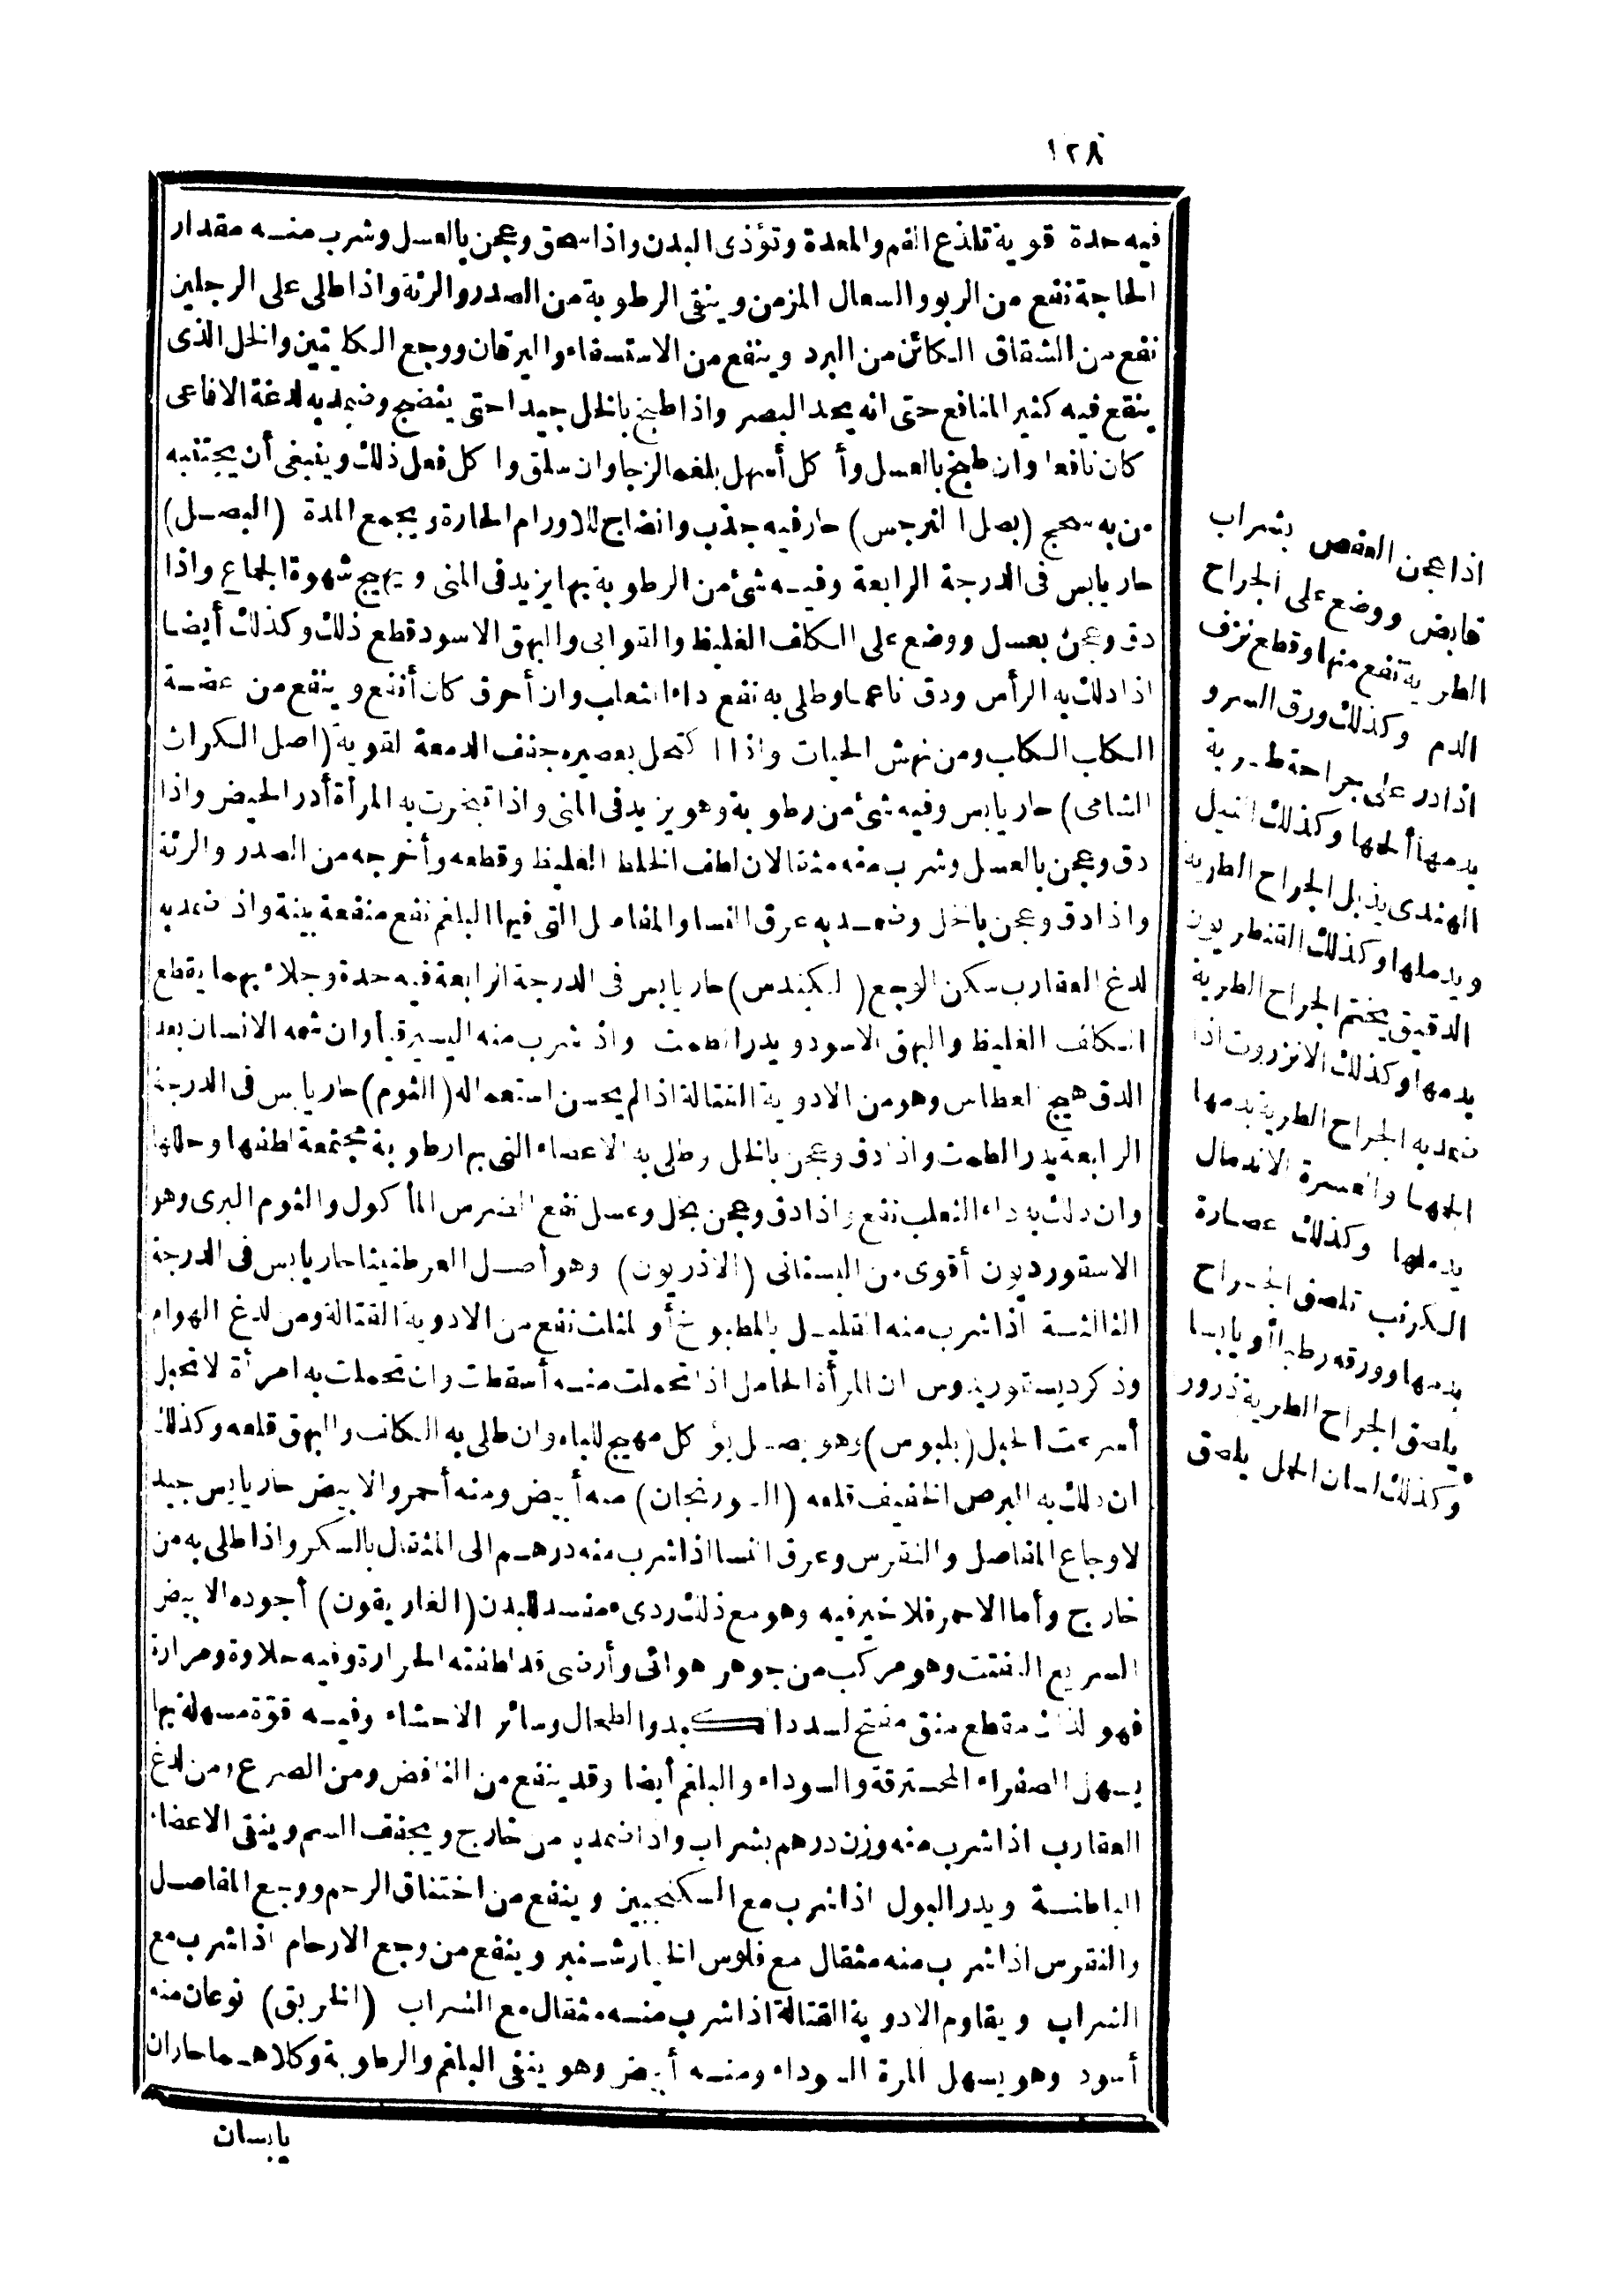 ١٢٨
فيه حدة قوية تلذع الفم والمعدة وتؤذى البدن واذا سحق وعجن بالعسل وشرب منه مقدار
الحاجة نفع من الربو والسعال المزمن وينقى الرطوبة من الصدر والرئة واذا طلى على الرجلين
نفع من الشقاق الكائن من البرد وينفع من الاستسقاء واليرقان ووجع الكليتين والخل الذى
ينقع فيه كثير المنافع حتى انه يحد البصر واذا طبخ بالخل جيدا حتى ينضج وضمد به لدغة الافاعى
كان نافعا وان طبخ بالعسل وأكل أسهل بلغما لزجا وان سلق واكل فعل ذلك وينبغى أن يجتنبه
من به سحج (بصل النرجس) حار فيه جذب وانضاج للاورام الحارة ويجمع المدة (البصل)
حار يابس فى الدرجة الرابعة وفيه شئ من الرطوبة بها يزيد فى المنى ويهيج شهوة الجماع واذا
دق وعجن بعسل ووضع على الكلف الغليظ والقوابى والبهق الاسود قطع ذلك وكذلك أيضا
اذا دلك به الرأس ودق ناعما وطلى به نفع داء الثعلب وان أحرق كان أنفع وينفع من عضة
الكلب الكلب ومن نهش الحيات واذا اكتحل بعصيره جفف الدمعة لقوية (اصل الكراث
الشامى) حار يابس وفيه شئ من رطوبة وهو يزيد فى المنى واذا تبخرت به المرأة أدر الحيض واذا
دق وعجن بالعسل وشرب منه مثقالان لطف الخلط الغليظ وقطعه وأخرجه من الصدر والرئة
واذا دق وعجن بالخل وضمد به عرق النسا والمفاصل التى فيها البلغم نفع منفعة بينة واذا ضمد به
لدغ العقارب سكن الوجع (الكندس) حار يابس فى الدرجة الرابعة فيه حدة وجلاء بهما يقطع
الكلف الغليظ والبهق الاسود ويدر الطمث واذا شرب منه اليسير قيأ وان شمه الانسان بعد
الدق هيج العطاس وهو من الادوية القتالة اذا لم يحسن استعماله (الثوم) حار يابس فى الدرجة
الرابعة يدر الطمث واذا دق وعجن بالخل وطلى به الاعضاء التى بها رطوبة مجتمعة لطفها وحللها
وان دلك به داء الثعلب نفع واذا دق وعجن بخل وعسل نفع الضرس المأكول والثوم البرى وهو
الاسقورديون أقوى من البستانى (الاذريون) وهو أصل العرطنيثا حار يابس فى الدرجة
الثالثة اذا شرب منه القليل بالمطبوخ أو المثلث نفع من الادوية القتالة ومن لدغ الهوام
وذكر ديسقوريدوس ان المرأة الحامل اذا تحملت منه أسقطت وان تحملت به امرأة لا تحبل
أسرعت الحبل (بلبوس) وهو بصل يؤكل مهيج للباه وان طلى به الكلف والبهق قلعه وكذلك
ان دلك به البرص الخفيف قلعه (السورنجان) منه أبيض ومنه أحمر والابيض حار يابس جيد
لاوجاع المفاصل والنقرس وعرق النسا اذا شرب منه درهم الى المثقال بالسكر واذا طلى به من
خارج وأما الاحمر فلا خير فيه وهو مع ذلك ردىء مفسد للبدن (الغاريقون) أجوده الابيض
السريع التفتت وهو مركب من جوهر هوائى وأرضى قد لطفته الحرارة وفيه حلاوة ومرارة
فهو لذلك مقطع منق مفتح لسدد الكبد والطحال وسائر الاحشاء وفيه قوة مسهلة بها
يسهل الصفراء المحترقة والسوداء والبلغم أيضا وقد ينفع من النافض ومن الصرع ومن لدغ
العقارب اذا شرب منه وزن درهم بشراب واذا ضمد به من خارج ويجفف السم وينقى الاعضاء
الباطنة ويدر البول اذا شرب مع السكنجبين وينفع من اختناق الرحم ووجع المفاصل
والنقرس اذا شرب منه مثقال مع فلوس الخيارشنبر وينفع من وجع الارحام اذا شرب مع
الشراب ويقاوم الادوية القتالة اذا شرب منه مثقال مع الشراب (الخربق) نوعان منه
أسود وهو يسهل المرة السوداء ومنه أبيض وهو ينقى البلغم والرطوبة وكلاهما حاران
يابسان
اذا عجن العفص بشراب
قابض ووضع على الجراح
الطرية نفع منها وقطع نزف
الدم وكذلك ورق السرو
اذا ذر على جراحة طرية
يدمها ألحمها وكذلك النيل
الهندى يذبل الجراح الطرية
ويدملها وكذلك القنطريون
الدقيق يختم الجراح الطرية
بدمها وكذلك الانزروت اذا
ضمد به الجراح الطرية بدمها
الحمها والعسرة الاندمال
يدملها وكذلك عصارة
الكرنب تلصق الجراح
بدمها وورقه رطبا أو يابسا
يلصق الجراح الطرية ذرور
وكذلك لسان الحمل يلصق